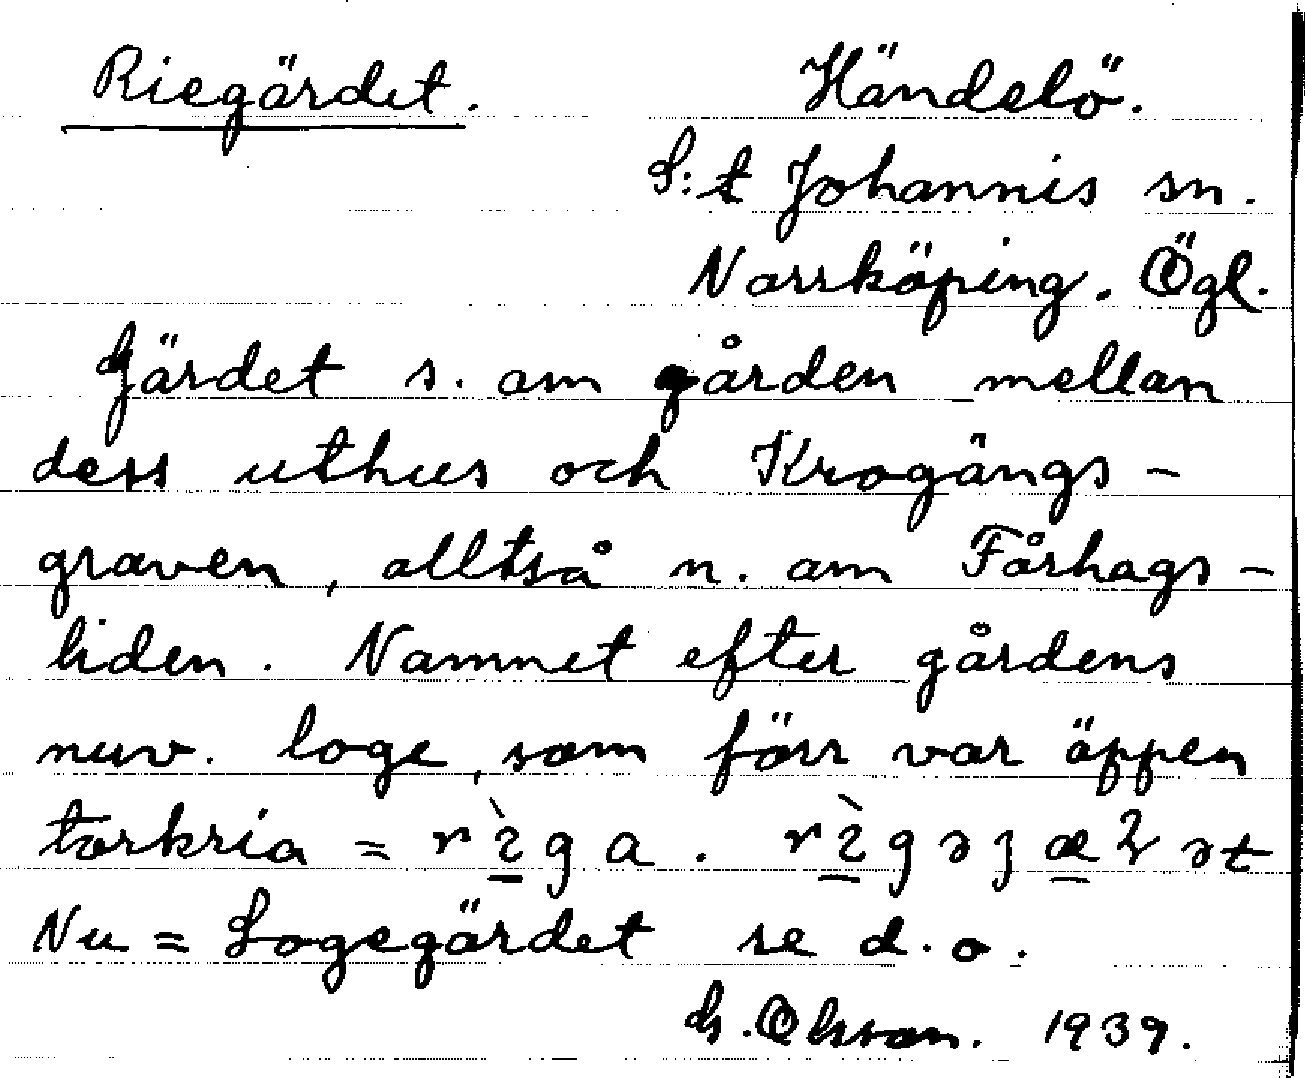 Riegärdet. Händelö.
S:t Johannis sn.
Norrköping. Ögl.
Gärdet s. om gården mellan
dess uthus och Krogängs-
graven, alltså n. om Fårhags-
liden. Namnet efter gårdens
nuv. loge, som förr var öppen
torkria =
Nu = Logegärdet se d.o.
1939.